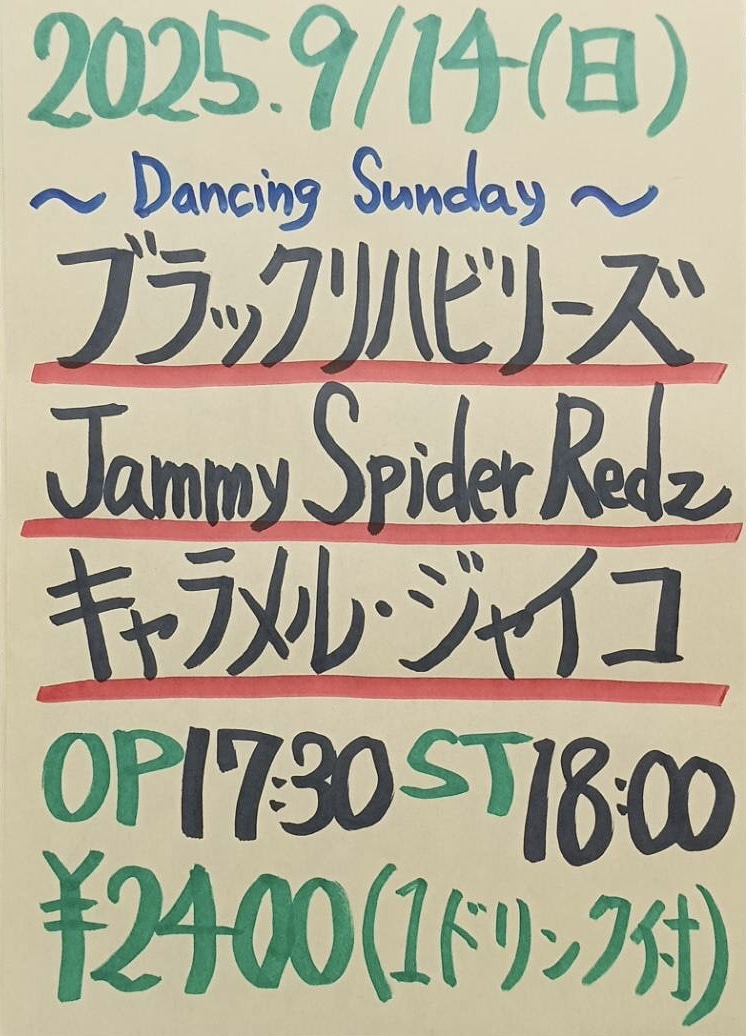 2025.9/14(日)
～ Dancing Sunday ～
ブラックリハビリーズ
Jammy Spider Redz
キャラメル・ジャイコ
OP17:30 ST18:00
¥2400(1ドリンク付)